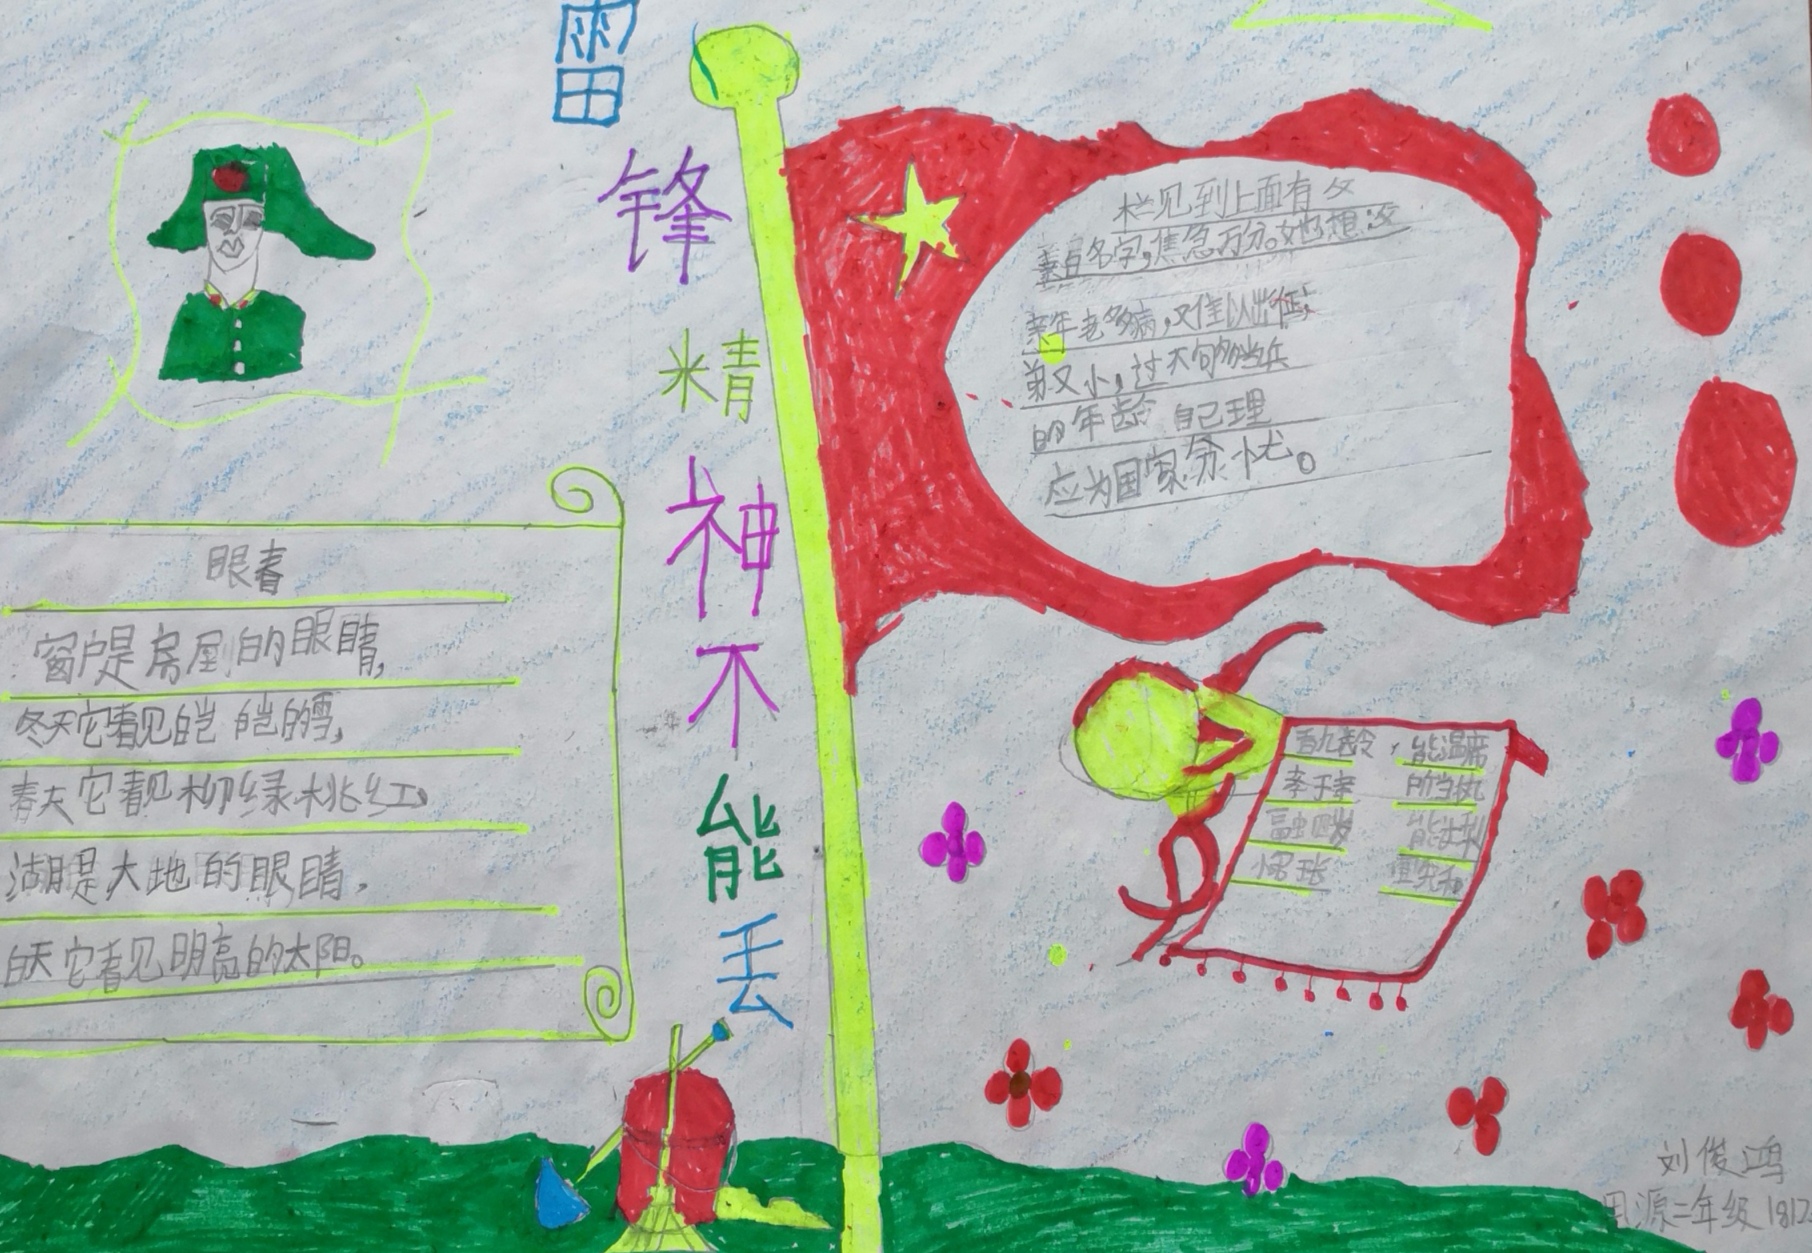 雷锋精神不能丢
眼看
窗户是房屋的眼睛,
冬天它看见皑皑的雪,
春天它看见柳绿桃红。
湖泊是大地的眼睛,
白天它看见明亮的太阳。
栏见到上面有父
亲自名字,焦急万分。她想:父
亲年老多病,又值以出征;
弟又小,过不够当兵
的年龄 自己理
应为国家分忧。
香九龄, 能温席
孝于亲 所当执
融四岁 能让梨
刘俊鸿
思源二年级 1812